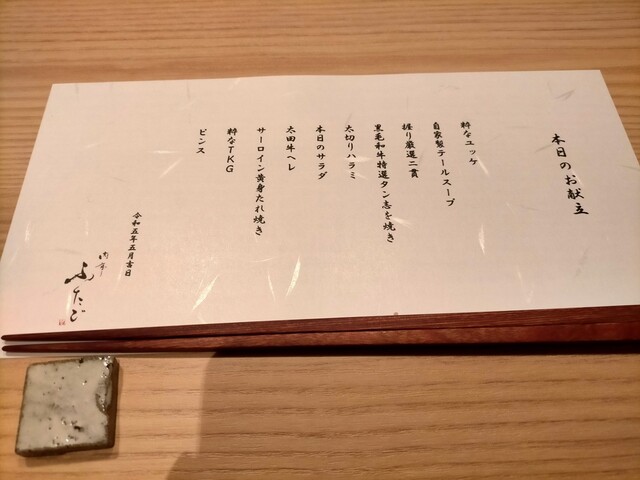 本日のお献立
粋なユッケ
自家製テールスープ
握り厳選二貫
黒毛和牛特選タン志を焼き
太切りハラミ
本日のサラダ
太田牛ヘレ
サーロイン黄身たれ焼き
粋なTKG
ピンス
令和五年五月吉日
ふたご